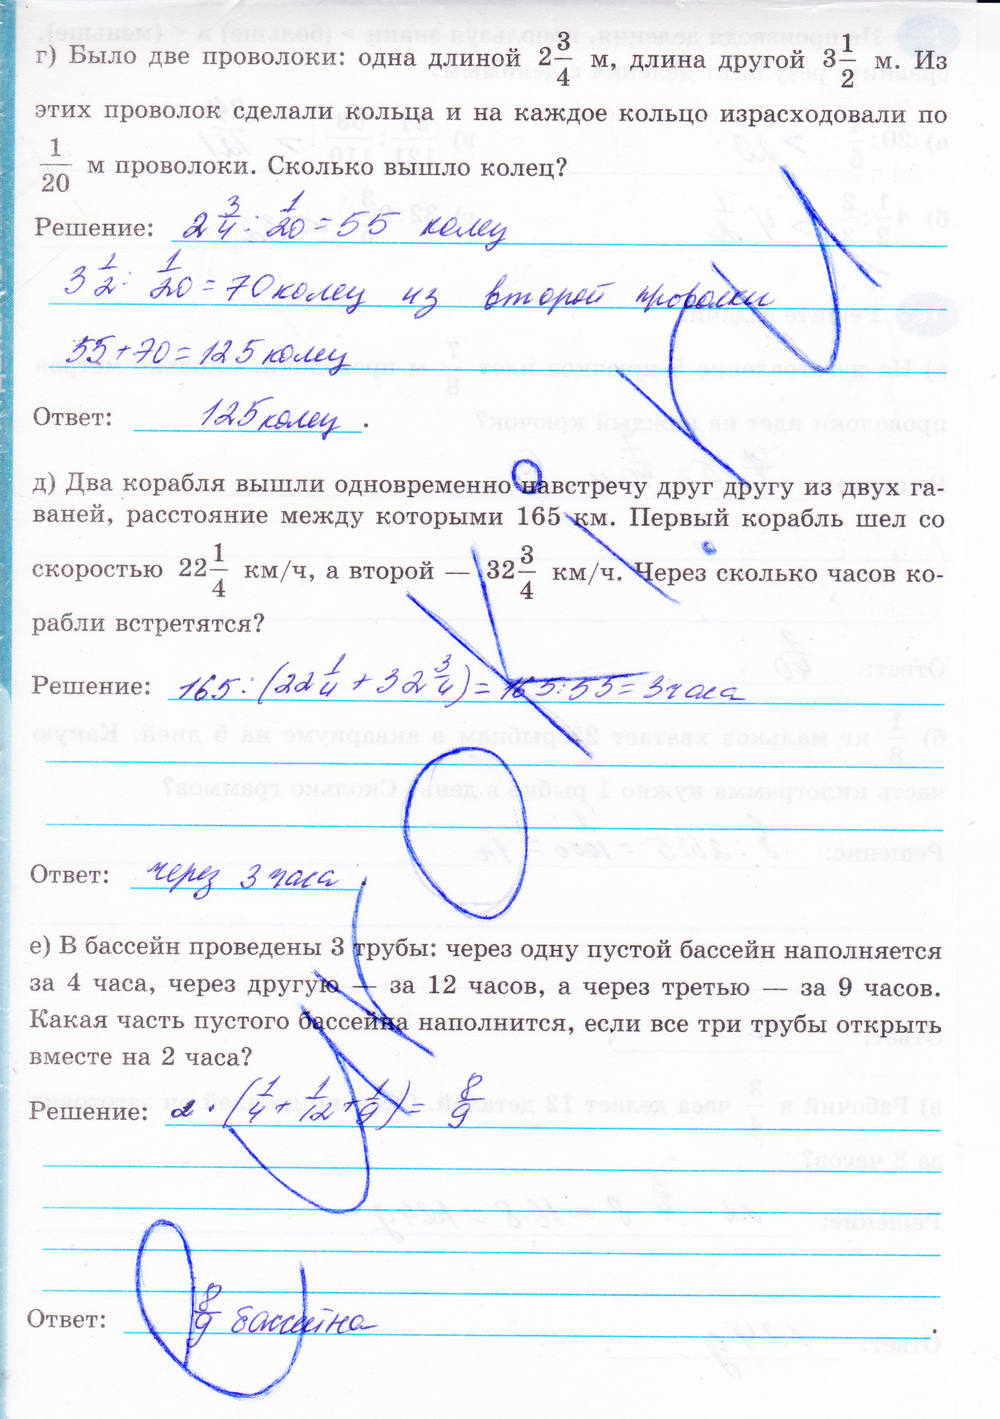 г) Было две проволоки: одна длиной 2 3/4 м, длина другой 3 1/2 м. Из
этих проволок сделали кольца и на каждое кольцо израсходовали по
1/20 м проволоки. Сколько вышло колец?
Решение: 2 3/4 : 1/20 = 55 колец
3 1/2 : 1/20 = 70 колец из второй проволки
55+70=125 колец
Ответ: 125 колец.
д) Два корабля вышли одновременно навстречу друг другу из двух га-
ваней, расстояние между которыми 165 км. Первый корабль шел со
скоростью 22 1/4 км/ч, а второй — 32 3/4 км/ч. Через сколько часов ко-
рабли встретятся?
Решение: 165 : (22 1/4 + 32 3/4) = 165 : 55 = 3 часа
Ответ: через 3 часа
е) В бассейн проведены 3 трубы: через одну пустой бассейн наполняется
за 4 часа, через другую — за 12 часов, а через третью — за 9 часов.
Какая часть пустого бассейна наполнится, если все три трубы открыть
вместе на 2 часа?
Решение: 2 · (1/4 + 1/12 + 1/9) = 8/9
Ответ: 8/9 бассейна.